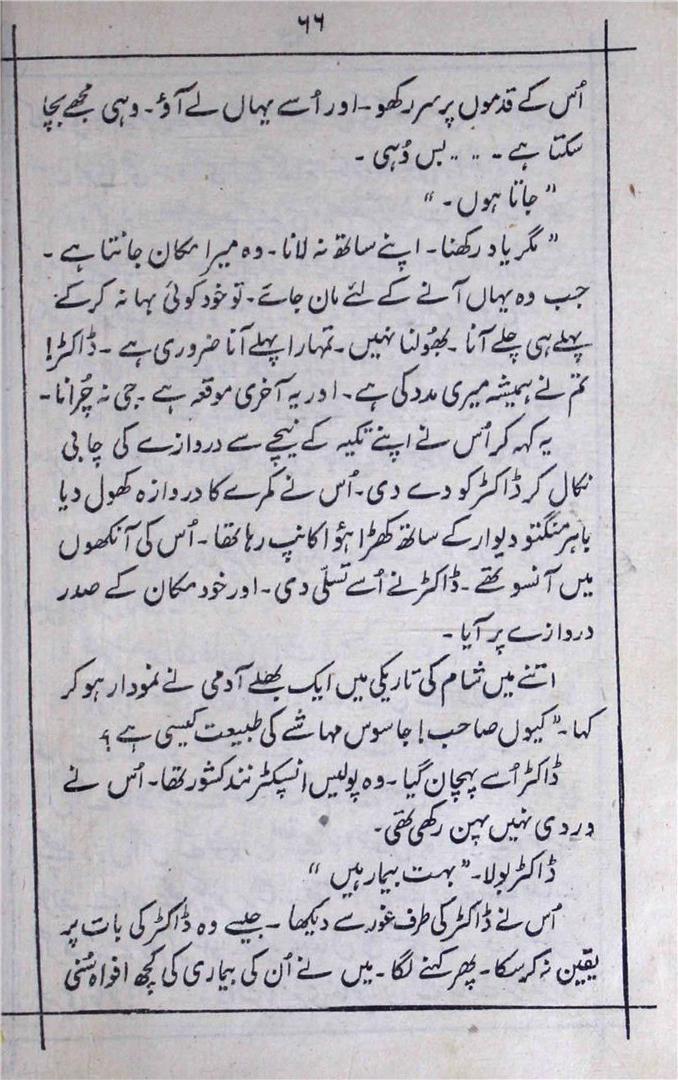 ۶۶
اُس کے قدموں پر سر رکھو۔ اور اُسے یہاں لے آؤ۔ وہی مجھے بچا
سکتا ہے ۔ ۔۔ ۔۔ بس وُہی ۔
” جاتا ہوں۔ “
” مگر یاد رکھنا۔ اپنے ساتھ نہ لانا۔ وہ میرا مکان جانتا ہے ۔
جب وہ یہاں آنے کے لئے مان جائے۔ تو خود کوئی بہانہ کر کے
پہلے ہی چلے آنا ۔ بھُولنا نہیں ۔ تمہارا پہلے آنا ضروری ہے ۔ ڈاکٹر!
تم نے ہمیشہ میری مدد کی ہے۔ اور یہ آخری موقعہ ہے ۔ جی نہ چُرانا ۔
یہ کہہ کر اُس نے اپنے تکیہ کے نیچے سے دروازے کی چابی
نکال کر ڈاکٹر کو دے دی۔ اُس نے کمرے کا دروازہ کھول دیا
باہر منگتو دیوار کے ساتھ کھڑا ہؤا کانپ رہا تھا۔ اُس کی آنکھوں
میں آنسو تھے ۔ ڈاکٹر نے اُسے تسلّی دی۔ اور خود مکان کے صدر
دروازے پر آیا ۔
اتنے میں شام کی تاریکی میں ایک بھلے آدمی نے نمودار ہو کر
کہا۔ ” کیوں صاحب! جاسوس مہاشے کی طبیعت کیسی ہے ؟
ڈاکٹر اُسے پہچان گیا ۔ وہ پولیس انسپکٹر نند کشور تھا۔ اُس نے
وردی نہیں پہن رکھی تھی۔
ڈاکٹر بولا۔ ” بہت بیمار ہیں “
اُس نے ڈاکٹر کی طرف غور سے دیکھا ۔ جیسے وہ ڈاکٹر کی بات پر
یقین نہ کر سکا۔ پھر کہنے لگا۔ میں نے اُن کی بیماری کی کچھ افواہ سُنی